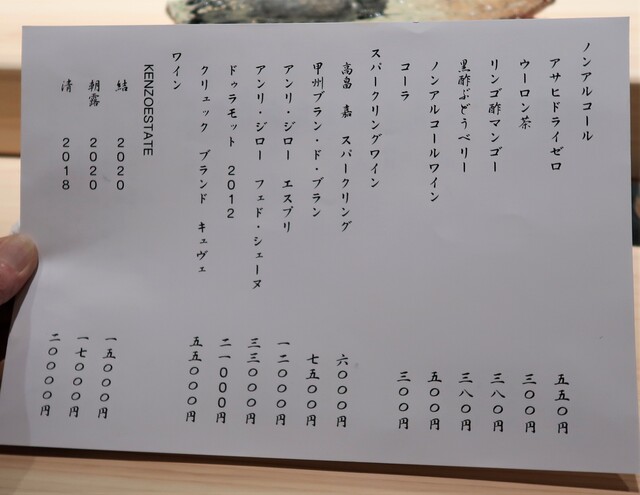 ノンアルコール
アサヒドライゼロ 五五〇円
ウーロン茶 三〇〇円
リンゴ酢マンゴー 三八〇円
黒酢ぶどうベリー 三八〇円
ノンアルコールワイン 五〇〇円
コーラ 三〇〇円
スパークリングワイン
高畠 嘉 スパークリング 六〇〇〇円
甲州ブラン・ド・ブラン 七五〇〇円
アンリ・ジロー エスプリ 一二〇〇〇円
アンリ・ジロー フェド・シェーヌ 三三〇〇〇円
ドゥラモット 2012 二一〇〇〇円
クリュック ブランド キュヴェ 五五〇〇〇円
ワイン
KENZOESTATE
結 2020 一五〇〇〇円
朝露 2020 一七〇〇〇円
清 2018 二〇〇〇〇円